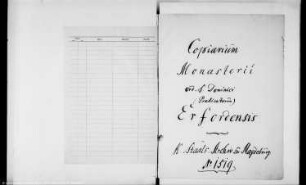 Copiarium
Monasterii
ord. S. Dominici
(Praedicatorum)
Erfordensis
K. Staats Archiv zu Magdeburg
No 1519.